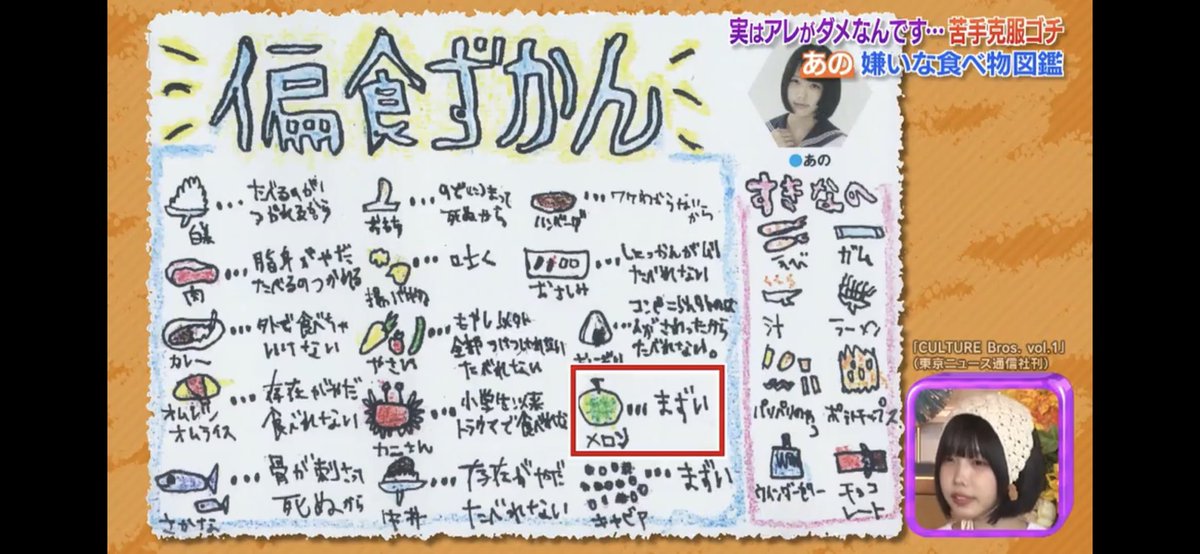 実はアレがダメなんです…苦手克服ゴチ
あの 嫌いな食べ物図鑑
偏食ずかん
あの
白米
…たべるのが
つかれるから
おもち
…のどにつまって
死ぬから
ハンバーグ
…ワケわからないから
肉
…脂身がやだ
たべるのつかれる
揚げ物
…吐く
おさしみ
…しょっかんがムリ
たべれない
カレー
…外で食べちゃ
いけない
やさい
…もやし以外
全部
たべれない
…コンビニ以外のは
人がさわったから
たべれない。
オムレツ
オムライス
…存在がやだ
食べれない
カニさん
…小学生以来
トラウマで食べれない
メロン
…まずい
さかな
…骨が刺さって
死ぬから
牛丼
…存在がやだ
たべれない
キャビア
…まずい
すきなの
えび
ガム
汁
ラーメン
パリパリのやつ
ポテトチップス
ウィンダーゼリー
チョコ
レート
「CULTURE Bros. vol.1」
(東京ニュース通信社刊)